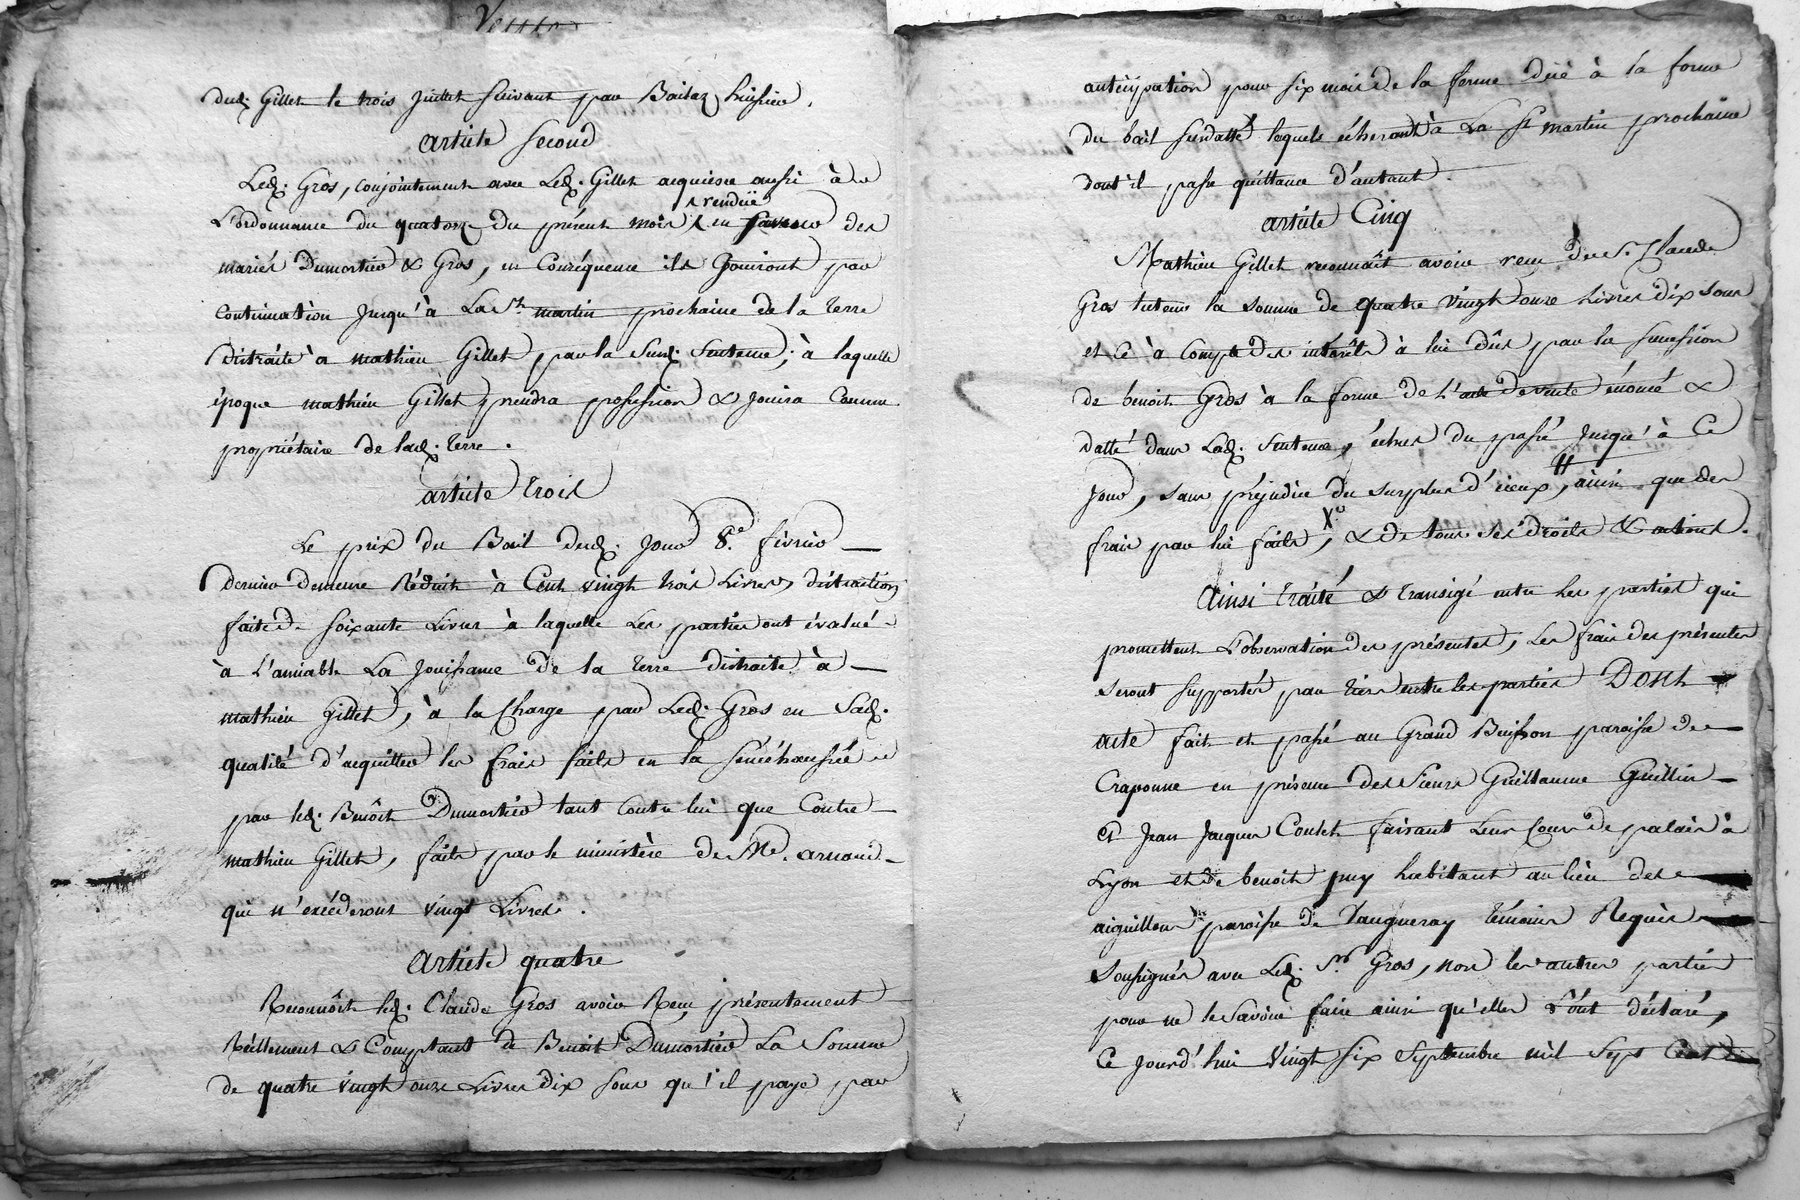 dud. Gillet le trois Juillet suivant par Bailaz huissier.
article second
Led. Gros, conjointement avec Led. Gillet acquiesce aussi à
L'ordonnance du quatorze du présent mois rendüe en faveur des
mariés Dumortier & Gros, en Conséquence ils Jouiront par
Continuation Jusqu'à La St. martin prochaine de la terre
Distraite à mathieu Gillet par la Susd. Sentence; à laquelle
époque mathieu Gillet prendra possession & Jouira Comme
propriétaire de lad. terre.
article trois
Le prix du Bail dud. Jour 8.e février
dernier demeure Réduit à Cent vingt trois Livres, distraction
faite de soixante Livres à laquelle Les parties ont évalué
à L'amiable La Jouissance de la terre distraite à
mathieu Gillet, à la Charge par Led. Gros en Sad.
qualité d'acquitter les frais faits en la sénéchaussée
par led. Benoît Dumortier tant Contre lui que Contre
mathieu Gillet, faits par le ministère de Me. arnaud
qui n'excéderont vingt Livres.
Article quatre
Reconnôit led. Claude Gros avoir Reçu présentement
Réellement & Comptant de Benoit Dumortier La Somme
de quatre vingt onze Livres dix sous qu'il paye par
anticipation pour six mois de la ferme düe à la forme
du bail susdatté lesquels écherront à La St martin prochaine
dont il passe quittance d'autant.
article Cinq
Mathieu Gillet reconnaît avoir reçu du Sr. Claude
Gros tuteur la somme de quatre vingt onze Livres dix sous
et ce à Compte des intérêts à lui dûs par la succession
de benoit Gros à la forme de L'acte de vente énoncé &
datté dans Lad. Sentence, échus du passé Jusqu'à Ce
Jour, sans préjudice du surplus d'iceux, ainsi que des
frais par lui faits, & de tous ses droits & actions.
Ainsi traité & transigé entre Les parties qui
promettent L'observation des présentes, Les frais des présentes
seront supportés par tiers entre les parties Dont
acte fait et passé au Grand Buisson paroisse de
Craponne en présence des Sieurs Guillaume Guillin
et Jean Jacques Coulet faisant Leur Cours de palais à
Lyon et de benoit puy habitant au lieu des
aiguillons paroisse de Vaugneray témoins Requis
Soussignés avec Led. Sr. Gros, non les autres parties
pour ne le savoir faire ainsi qu'elles L'ont déclaré,
Ce Jourd'hui vingt six Septembre mil Sept Cent